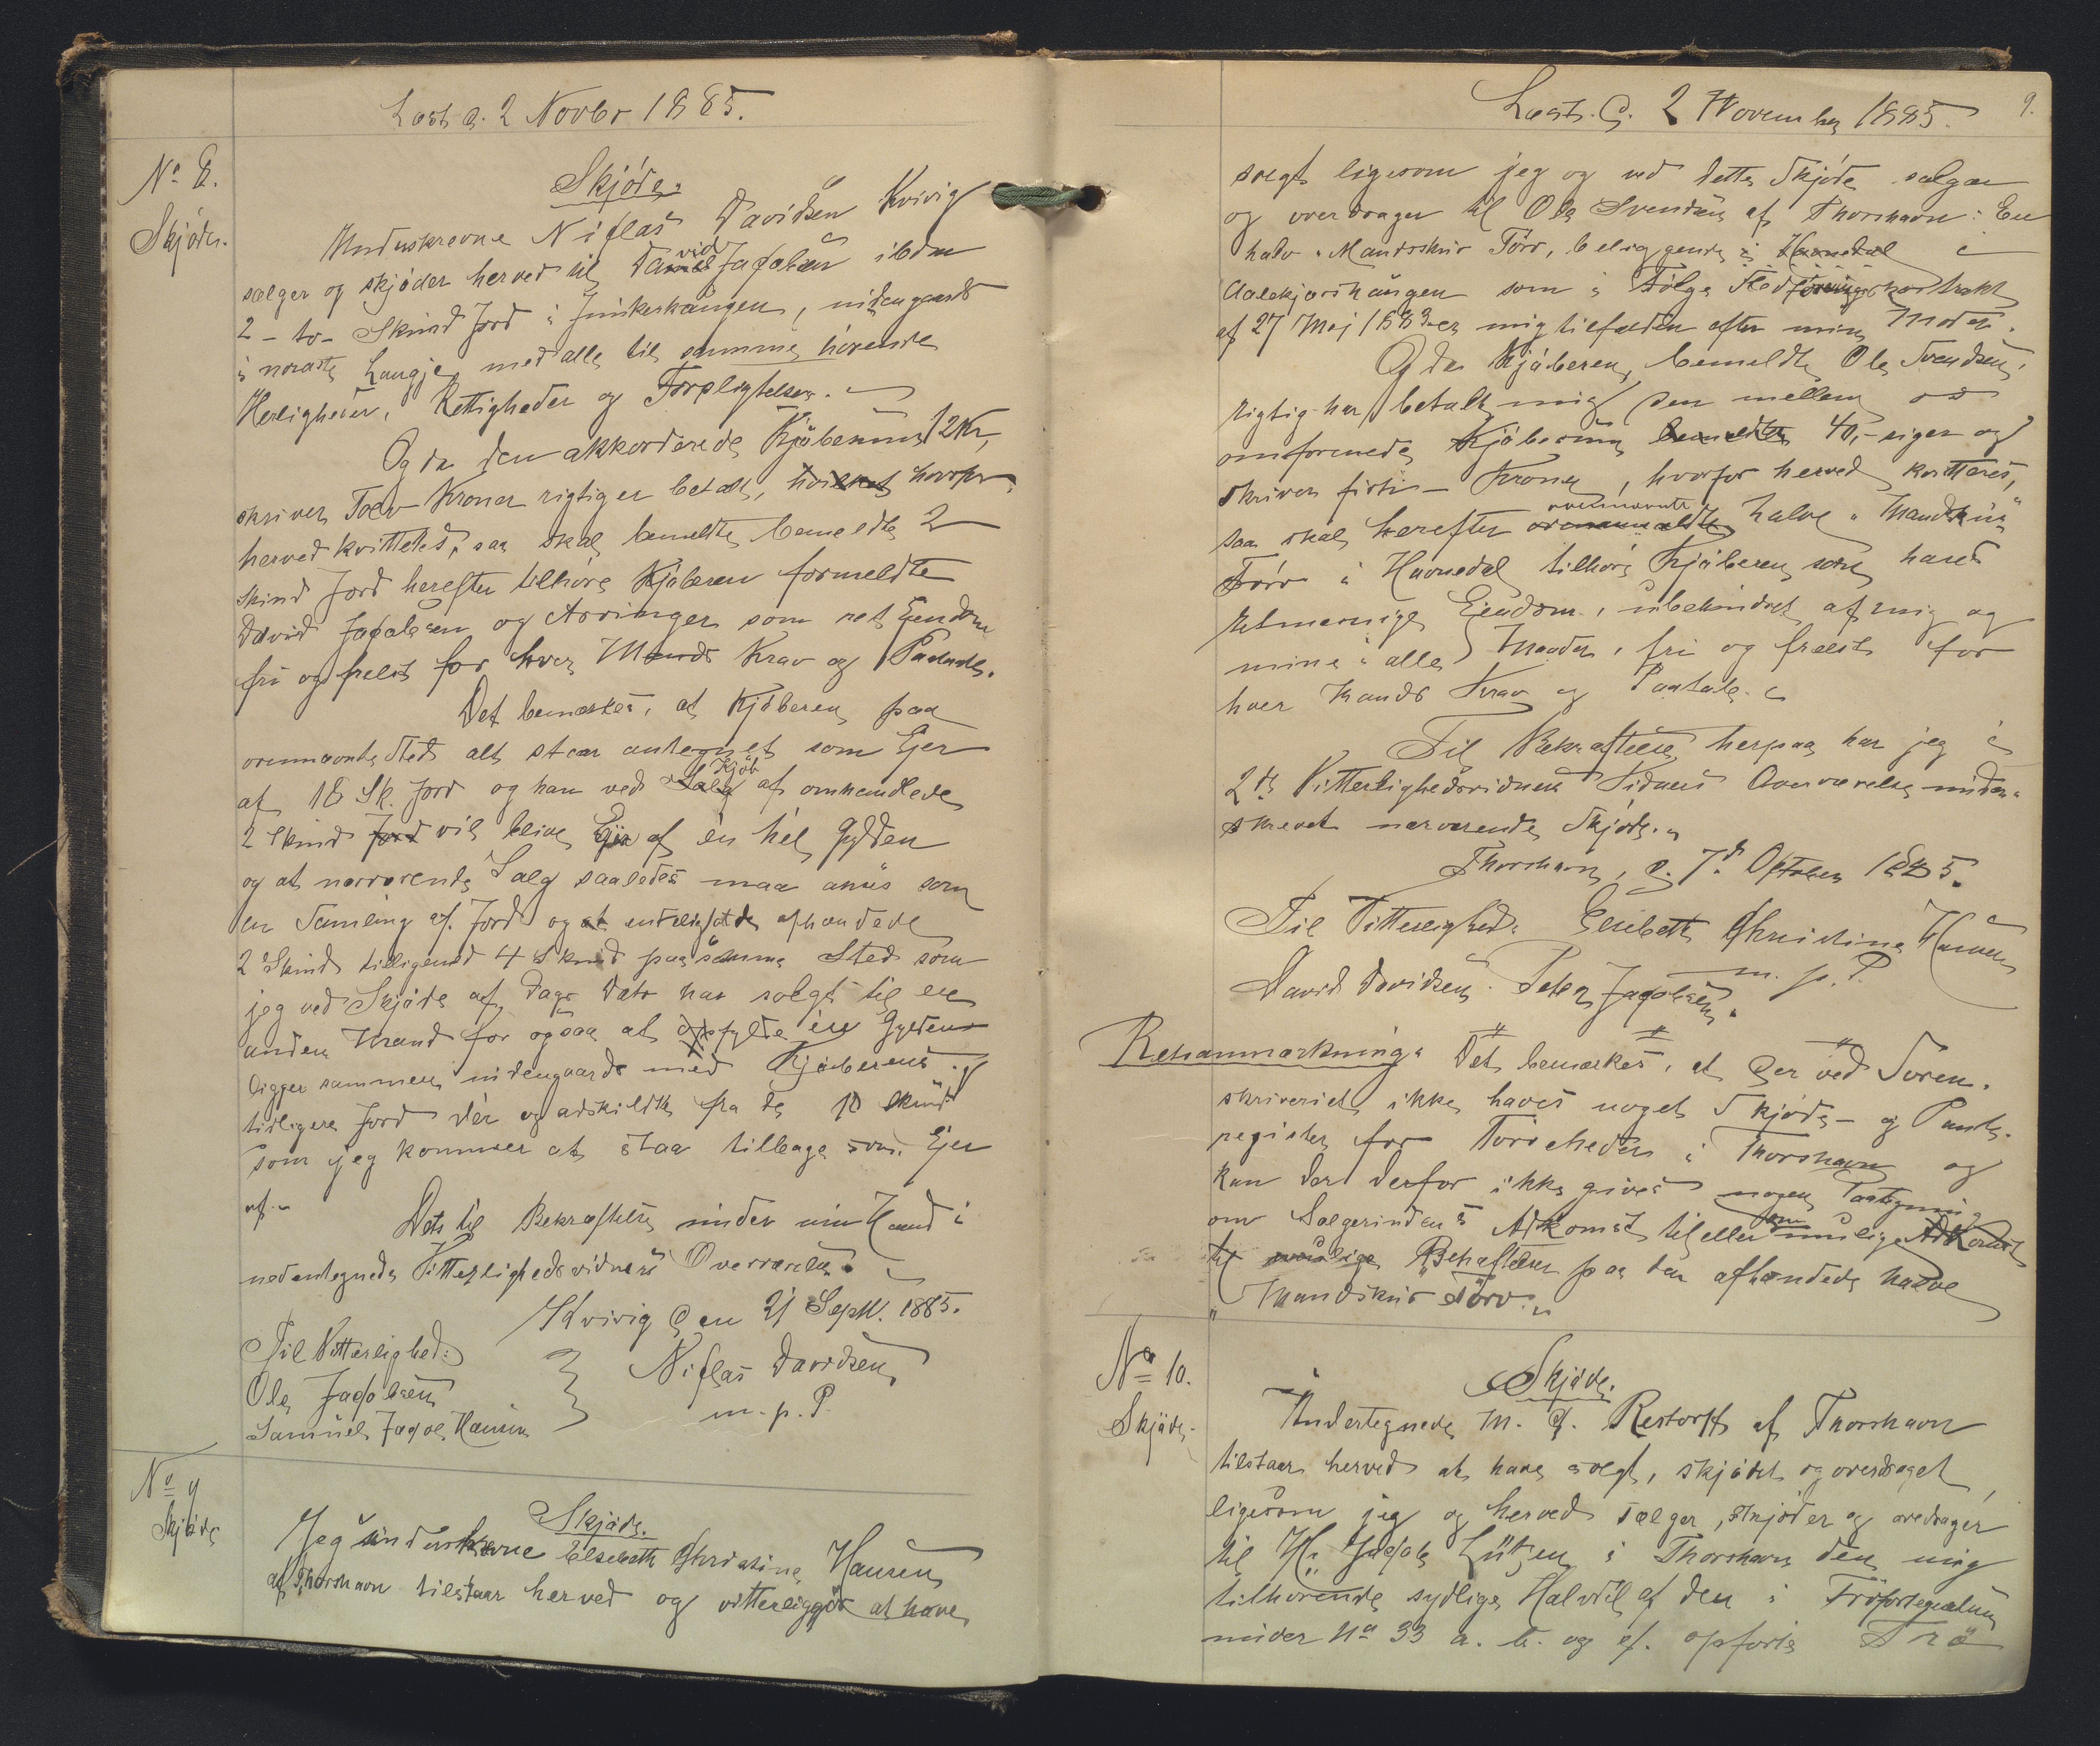 Læst d. 2 Novbr 1885.
No 8.
Skjöde.
Skjöde.
Underskrevne Niclas Davidsen Kvivig
sælger og skjöder herved til David Jacobsen ibdm
2 - to - Skind Jord i Junkershaugen, nidengaards
i noraste Laugje, med alle til samme hörende
Herligheder, Rettigheder og Forpligtelser.
Og da den akkorderede Kjöbesum 12 Kr,
skriver Tolv Kroner rigtig er betalt, hvilket hvorfor
herved kvitteres, saa skal bemeldte bemeldte 2
Skind Jord herefter tilhöre Kjöberen formeldte
David Jacobsen og Arvinger som ret Eiendom
fri og frelst for hver Mands Krav og Paatale.
Det bemærkes, at Kjöberen paa
ovennævnte Sted alt staar antegnet som Ejer
af 18 Sk. Jord og han ved Salg Kjöb af omhandlede
2 Skind Jord vil blive Ejer af én hel Gylden
og at nærværende Salg saaledes maa anses som
en Samling af Jord og at afhændede
2 Skind tilligemed 4 Skind paa samme Sted som
jeg ved Skjöde af Dags Dato har solgt til en
anden Mand for ogsaa at opfylde én Gylden
ligger sammen nidengaards med Kjöberens
tidligere Jord dér og adskildte fra de 10 Skind
som jeg kommer at staa tilbage som Ejer
af.
Dets til Bekræftelse under min Haand i
nedentegnede Vitterlighedsvidners Overværelse.
Kvivig den 21 Septbr. 1885.
Til Vitterlighed:
Ole Jacobsen
Samuel Jacob Hansen
Niclas Davidsen
m. p. P.
No 9
Skjöde
Skjöde.
Jeg underskrevne Elsebeth Christine Hansen
af Thorshavn tilstaar herved og vitterliggjör at have
Læst. d. 2 November 1885.
9.
solgt ligesom jeg og ved dette Skjöde sælger
og overdrager til Ole Svendsen af Thorshavn: En
halv "Mandsskur Törv, beliggende i Havnedal i
som i Fölge Kontrakt
af 27 Maj 1883 er mig tilfalden efter min Moder.
Og da Kjöberen, bemeldte Ole Svendsen,
rigtig har betalt mig den mellem os
omforenede Kjöbesum bemeldte 40,- siger og
skriver firti - Kroner, hvorfor herved kvitteres,
saa skal herefter ovenanmeldte ovennævnte halve "Mandskur"
Törv i Havnedal tilhöre Kjöberen som hans
retmæssige Eiendom, ubehindret af mig og
mine i alle Maader, fri og frelst for
hver Mands Krav og Paatale.
Til Bekræftelse herpaa har jeg i
2de Vitterlighedsvidners Sidners Overværelse under-
skrevet nærværende Skjöde.
Thorshavn, d. 7de October 1885.
Til Vitterlighed: Elsebeth Christine Hansen
David Davidsen. Peter Jacobsen. m. p. P.
Retsanmærkning: Det bemærkes, at der ved Soren-
skriveriet ikke haves noget Skjöde- og Pante-
register for Törvehedén i Thorshavn og
kan der derfor ikke gives nogen Paategning
om Sælgerindens Adkomst til eller om mulige Adkomst
til mulige Behæftelser paa den afhændede halve
"Mandskur Törv".
No 10.
Skjöde.
Skjöde.
Undertegnede M. C. Restorff af Thorshavn
tilstaar herved at have solgt, skjödet og overdraget,
ligesom jeg og herved sælger, skjöder og overdrager
til Hr. Jacob Lützen i Thorshavn den mig
tilhörende sydlige Halvdel af den i Tröfortegnelsen
under No 33 a. b. og c. opförte Trö